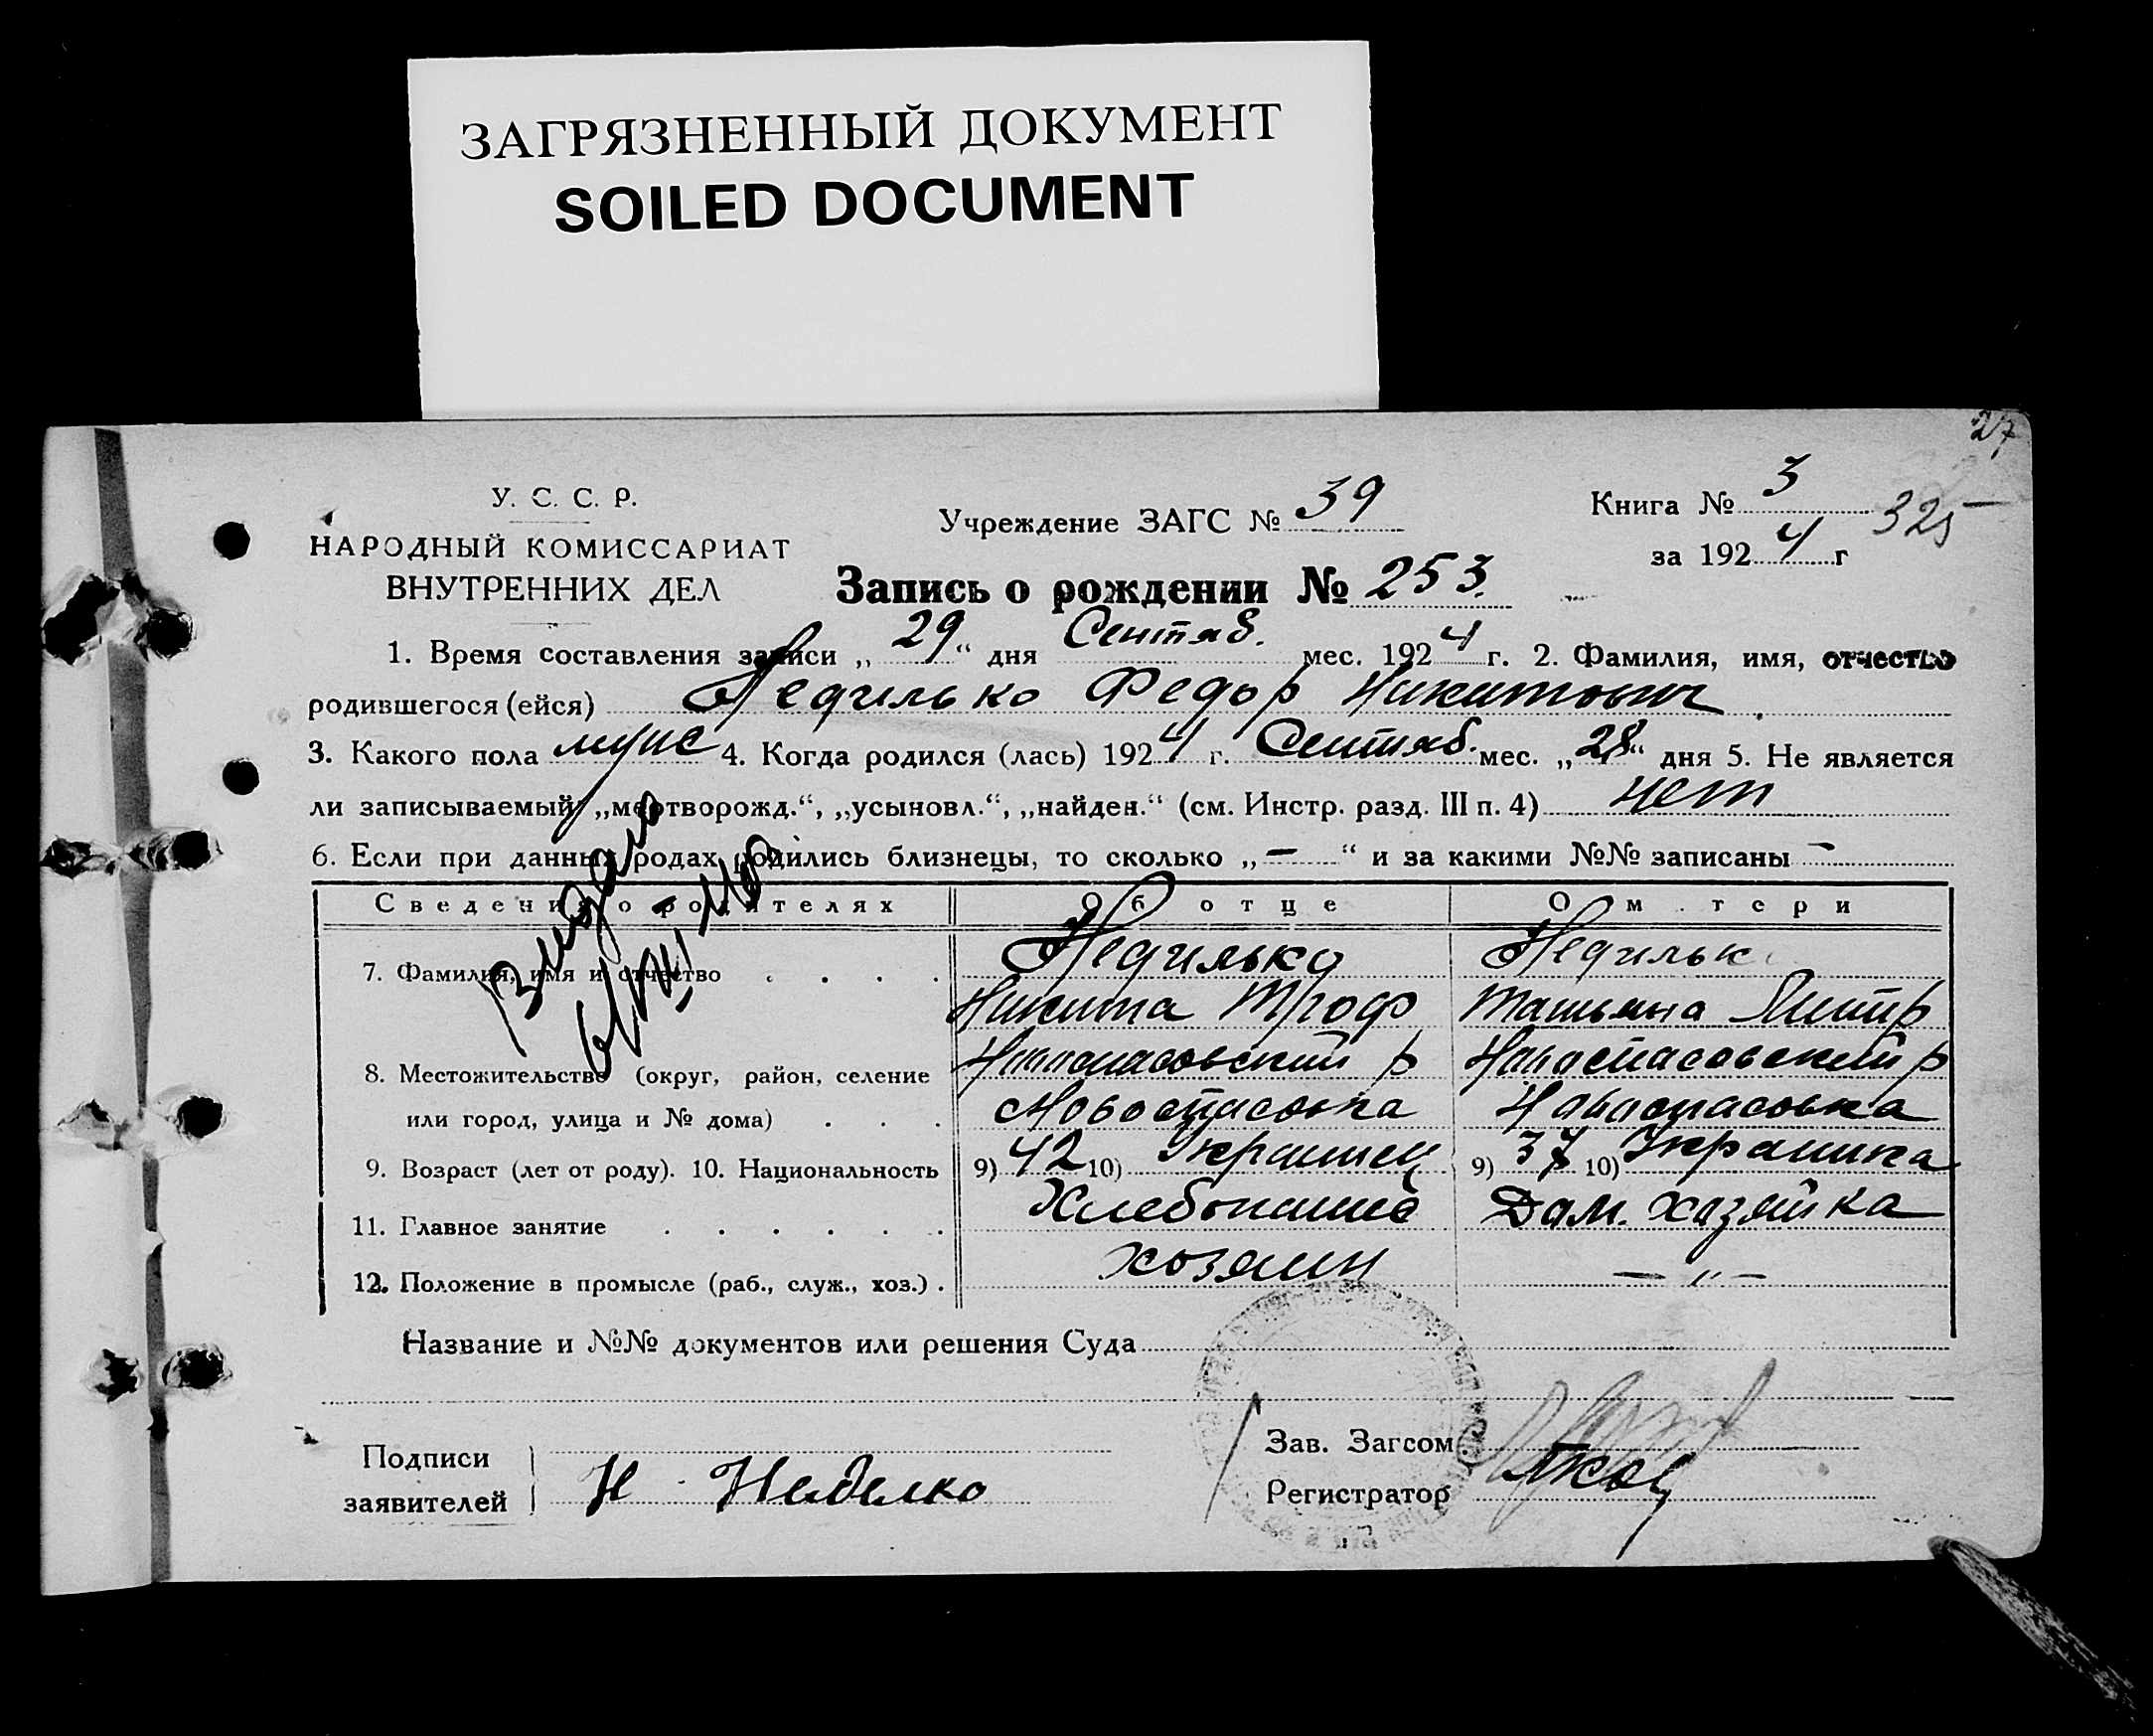 ЗАГРЯЗНЕННЫЙ ДОКУМЕНТ
SOILED DOCUMENT
27
У. С. С. Р.
НАРОДНЫЙ КОМИССАРИАТ
ВНУТРЕННИХ ДЕЛ
Учреждение ЗАГС № 39
Книга № 3
325
за 1924 г
Запись о рождении № 253.
1. Время составления записи „ 29 “ дня Сентяб. мес. 1924 г. 2. Фамилия, имя, отчество
родившегося (ейся) Недилько Федор Никитович
3. Какого пола муж 4. Когда родился (лась) 1924 г. Сентяб. мес. „ 28 “ дня 5. Не является
ли записываемый „мертворожд.“, „усыновл.“, „найден.“ (см. Инстр. разд. III п. 4) нет
6. Если при данных родах родились близнецы, то сколько „ — “ и за какими №№ записаны —
Сведения о родителях Об отце О м тери
7. Фамилия, имя и отчество . . . . Недилько Недильк
Никита Троф Татьяна
8. Местожительство (округ, район, селение Новоспасовский р Новоспасовский р
или город, улица и № дома) . . . Новоспасовка Новоспасовка
9. Возраст (лет от роду). 10. Национальность 9) 42 10) Украинец 9) 37 10) Украинка
11. Главное занятие . . . . . . Хлебопаше Дом. хозяйка
12. Положение в промысле (раб., служ., хоз.) . хозяин — „ —
Видано
Название и №№ документов или решения Суда
Подписи
заявителей Н Неделко
Зав. Загсом
Регистратор